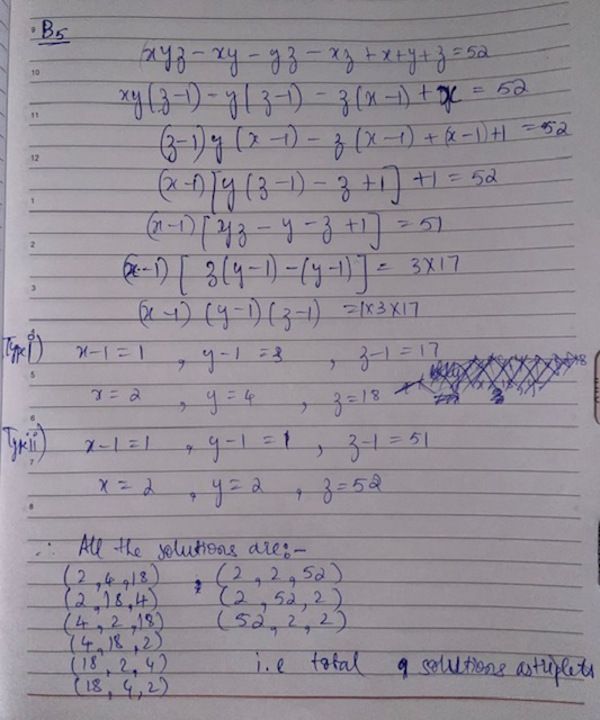 B5
xyz - xy - yz - xz + x + y + z = 52
xy(z-1) - y(z-1) - z(x-1) + x = 52
(z-1)y(x-1) - z(x-1) + (x-1)+1 = 52
(x-1)[y(z-1) - z + 1] + 1 = 52
(x-1)[yz - y - z + 1] = 51
(x-1)[z(y-1) - (y-1)] = 3×17
(x-1)(y-1)(z-1) = 1×3×17
Type i) x-1 = 1 , y-1 = 3 , z-1 = 17
x = 2 , y = 4 , z = 18
Type ii) x-1 = 1 , y-1 = 1 , z-1 = 51
x = 2 , y = 2 , z = 52
∴ All the solutions are:-
(2,4,18) , (2,2,52)
(2,18,4) (2,52,2)
(4,2,18) (52,2,2)
(4,18,2)
(18,2,4) i.e total 9 solutions as triplets
(18,4,2)